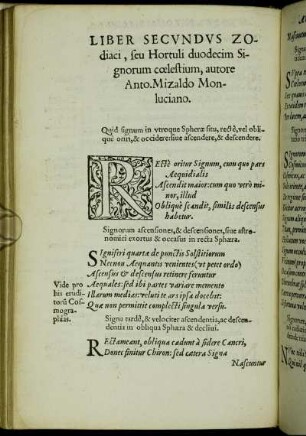 LIBER SECVNDVS ZO-
diaci, seu Hortuli duodecim Si-
gnorum cœlestium, autore
Anto. Mizaldo Mon-
luciano.
Quid signum in vtraque Sphæra sita, rectè, vel obli-
què oriri, & occidere siue ascendere, & descendere.
RECTè oritur Signum, cum quo pars
Aequidialis
Ascendit maior: cum quo verò mi-
nor, illud
Obliquè scandit, similis descensus
habetur.
Signorum ascensiones, & descensiones, siue astro-
nomici exortus & occasus in recta Sphæra.
SIgniferi quarta de punctis Solstitiorum
Necnon Aequantis venientes (vt petet ordo)
Ascensus & descensus retinere feruntur
Aequales: sed ibi partes variare memento
Illarum medias: veluti te ars ipsa docebat:
Quæ non permittit complecti singula versu.
Vide pro
his erudi-
torũ Cos-
mogra-
phias.
Signa tardè, & velociter ascendentia, ac descen-
dentia in obliqua Sphæra & decliui.
REctà meant, obliqua cadunt à sidere Cancri,
Donec finitur Chiron: sed cætera Signa
Nascuntur